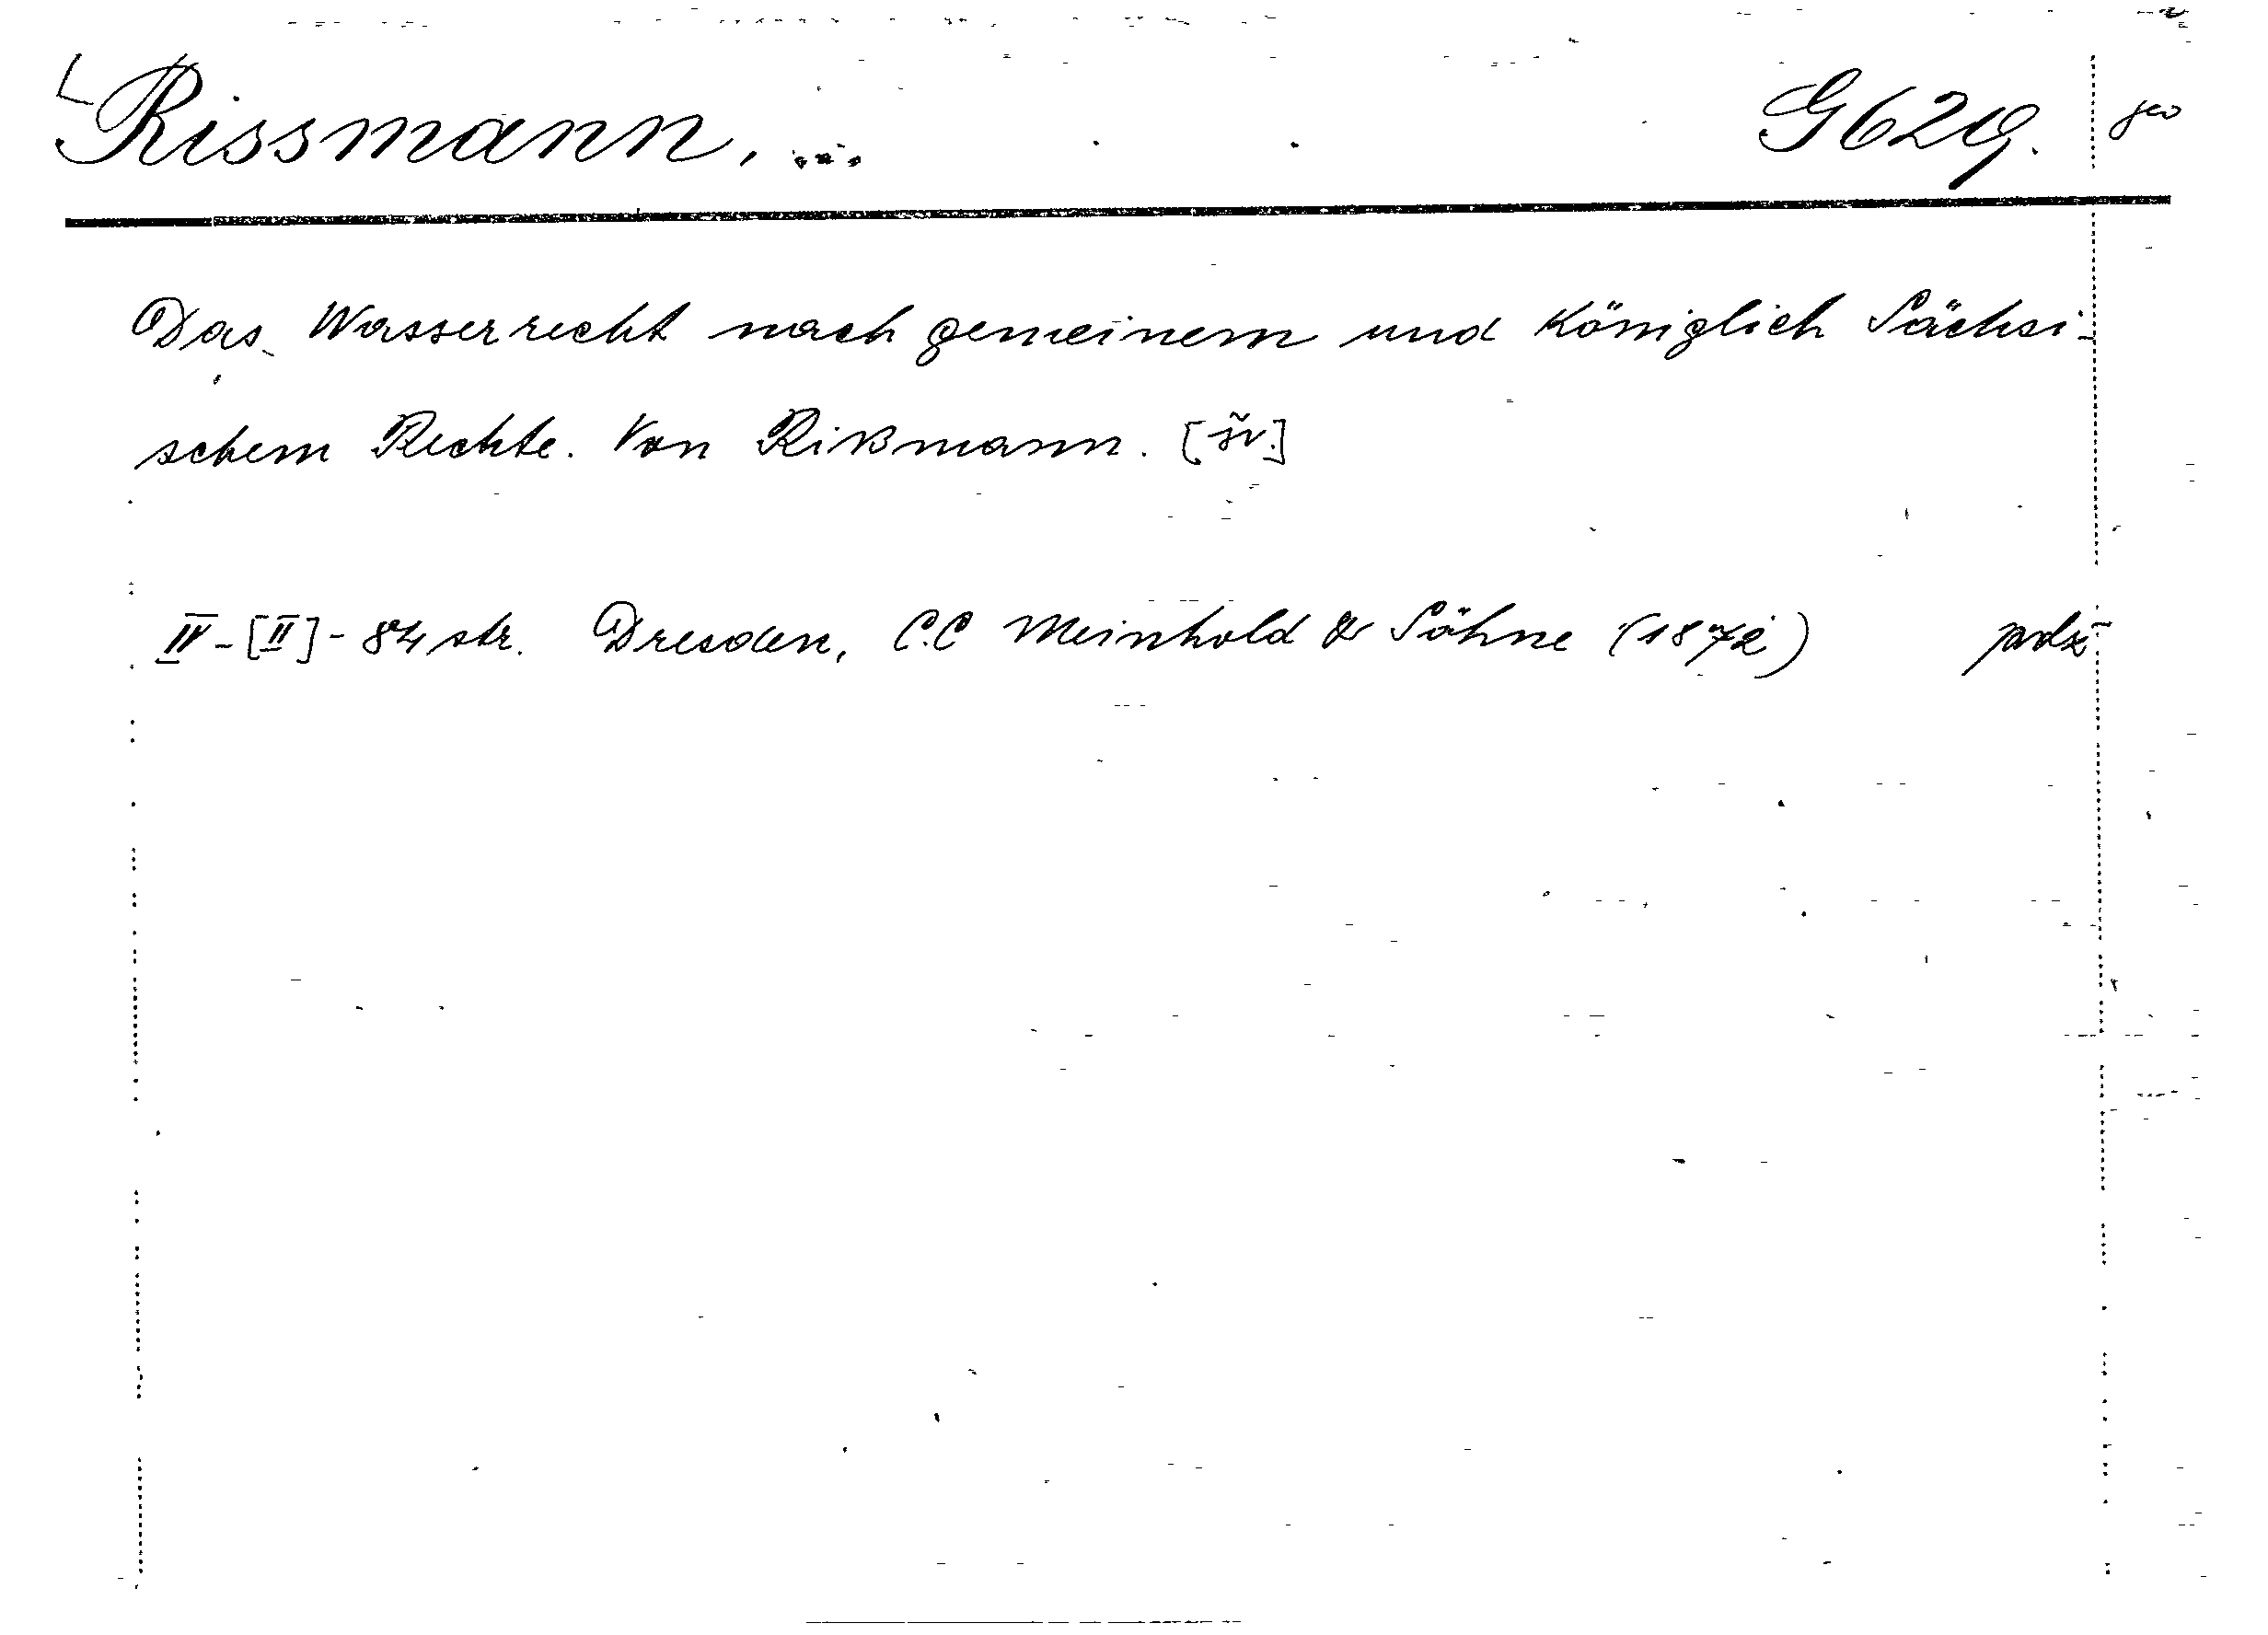 Rissmann, ... G 629.
Das Wasserrecht nach gemeinem und Königlich Sächsi-
schem Rechte. Von Rißmann. [šv.]
IV-[II]-84 str. Dresden, C.C Meinhold & Söhne (1872)